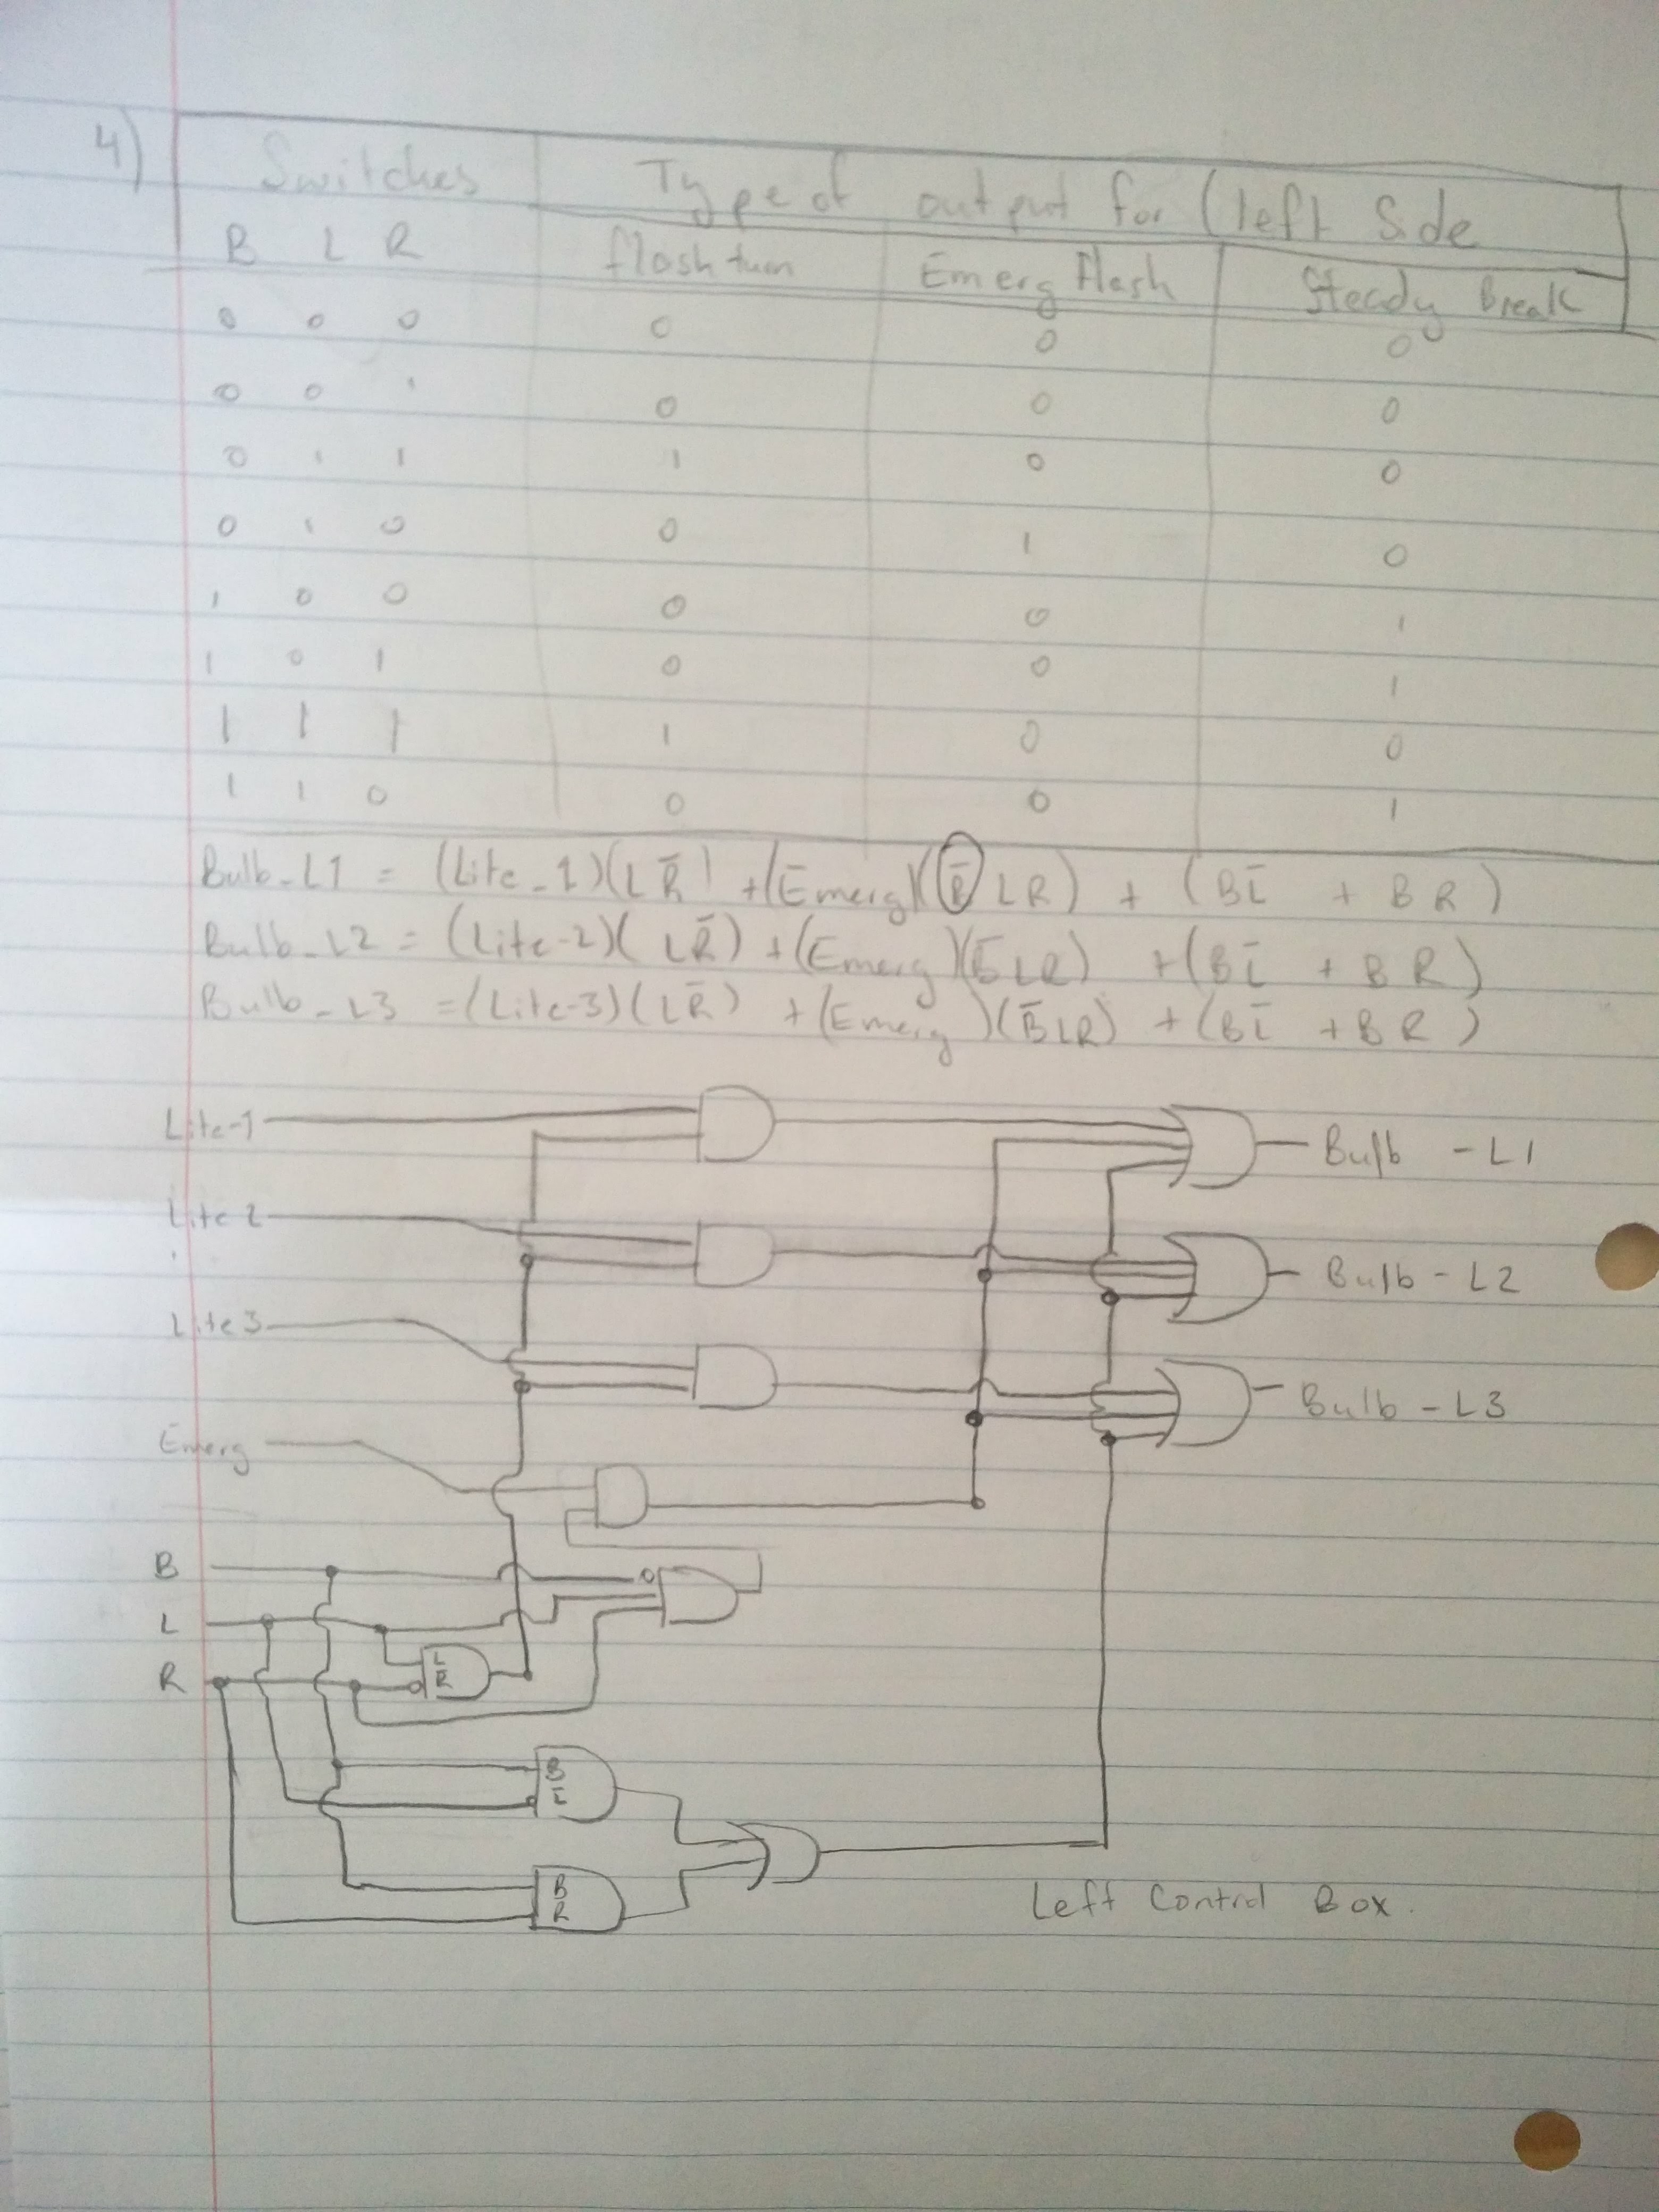 4)
Switches Type of output for (left Side
B L R flash turn Emerg Flash Steady Break
0 0 0 0 0 0
0 0 1 0 0 0
0 1 1 1 0 0
0 1 0 0 1 0
1 0 0 0 0 1
1 0 1 0 0 1
1 1 1 1 0 0
1 1 0 0 0 1
Bulb_L1 = (Lite_1)(LR̄) + (Emerg)(B̄LR) + (BL̄ + BR)
Bulb_L2 = (Lite-2)(LR̄) + (Emerg)(B̄LR) + (BL̄ + BR)
Bulb_L3 = (Lite-3)(LR̄) + (Emerg)(B̄LR) + (BL̄ + BR)
Lite-1
Bulb - L1
Lite 2
Bulb - L2
Lite 3
Bulb - L3
Emerg
B
L
R
L
R̄
B
L̄
B
R
Left Control Box.